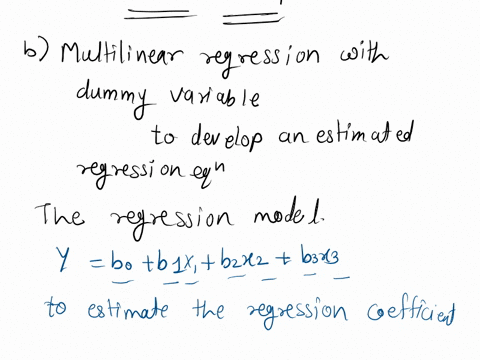 b) Multilinear regression with
dummy variable
to develop an estimated
regression eqⁿ
The regression model.
Y = b0 + b1x1 + b2x2 + b3x3
to estimate the regression coefficient